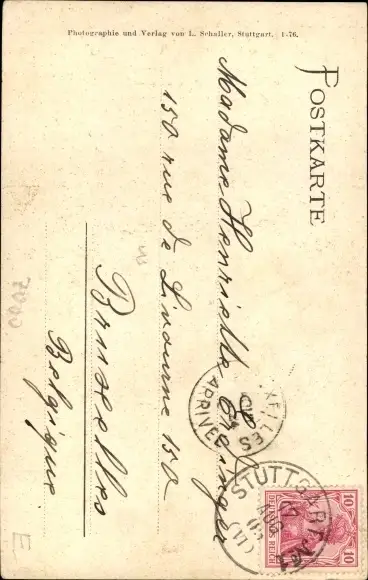 Photographie und Verlag von L. Schaller, Stuttgart. 1-76.
POSTKARTE
Madame Henriette
150 rue de 150
Bruxelles
Belgique
7000
E
XELLES
ARRIVEE
STUTTGART
10 10
DEUTSCHES REICH